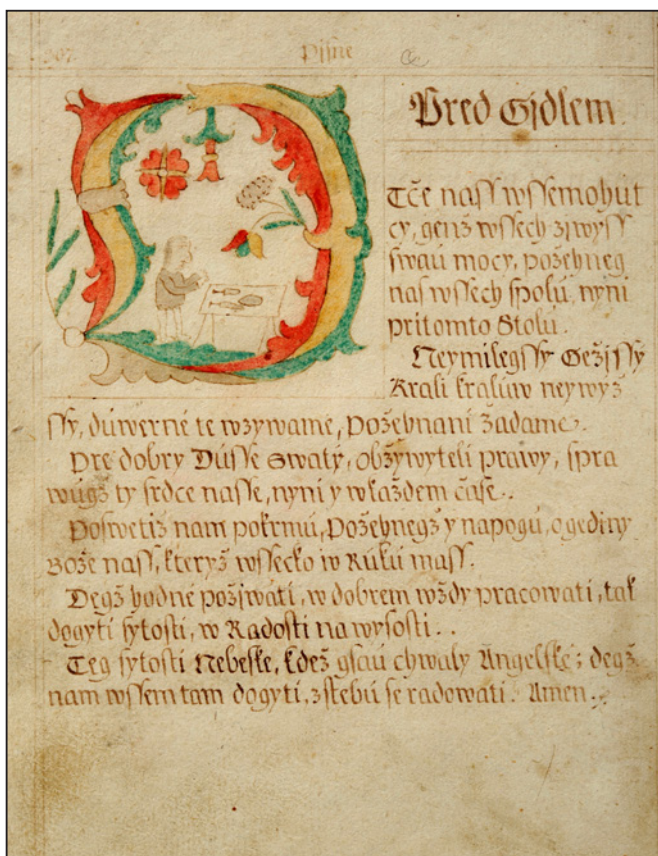 307. Pisne
Pred Gidlem.
Tče nass wssemohut
cy, genž wssech ziwyss
swau mocy, požehneg
nas wssech spolu, nyni
pritomto Stolu.
Neymilegssy Gežissy
Krali kraluw neywyz
ssy, duwerne te wzywame, Požehnani žadame.
Pre dobry Dusse Swaty, obžywyteli prawy, spra
wugž ty srdce nasse, nyni y wkaždem čase..
Poswetiž nam pokrmu, Požehnegž y napogu, o gediny
Bože nass, kteryž wssecko iw Ruku mass.
Degž hodne požiwati, w dobrem wždy pracowati, tak
dogyti sytosti, w Radosti na wysosti..
Teg sytosti Nebeske, kdež gsau chwaly Angelske; degž
nam wssem tam dogyti, z stebu se radowati. Amen..